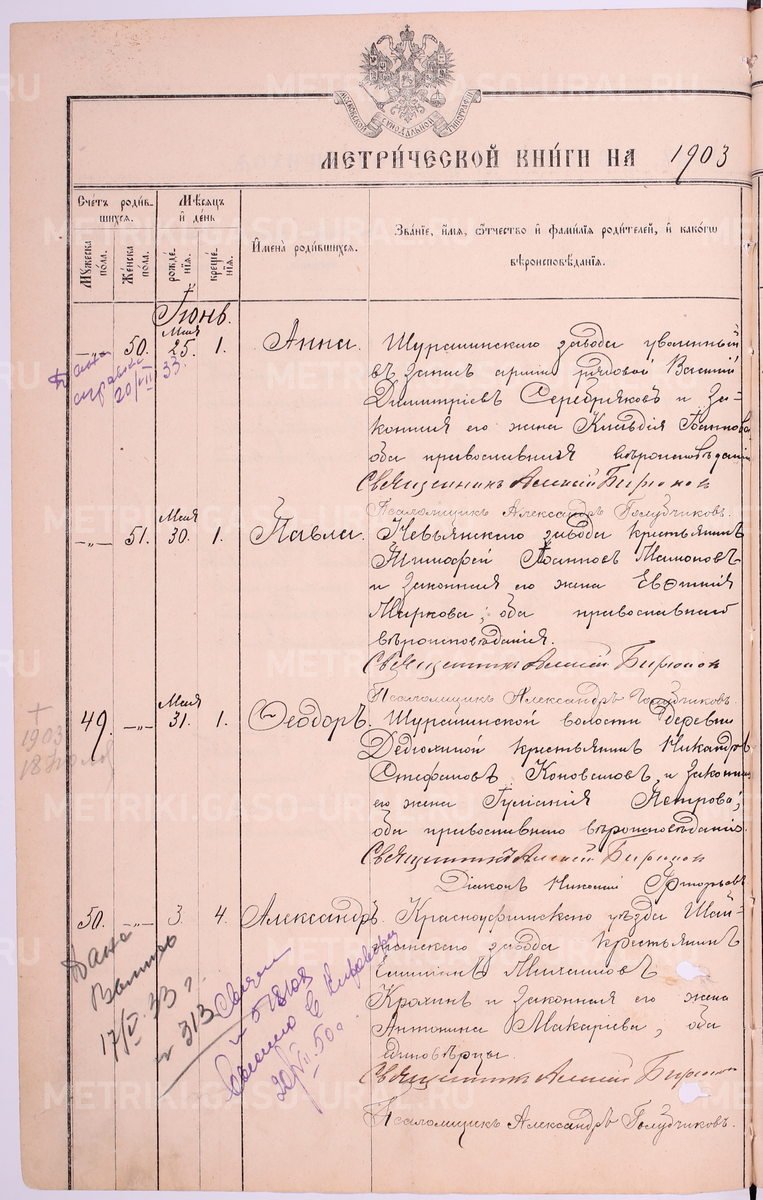 МЕТРИ́ЧЕСКОЙ КНИ́ГИ НА 1903
Сче́тъ роди́в-
шихся.
Мѣсяцъ
и҆ де́нь
Мꙋжеска по́ла.
Же́нска по́ла.
рожде́-
нїя.
креще́-
нїя.
И҆мена̀ роди́вшихся.
Зва́нїе, и҆́мя, ѻ҆́тчество и҆ фами́лїя роди́телей, и҆ како́гѡ
вѣроисповѣ́данїя.
Іюнь.
Мая
—„— 50. 25. 1. Анна. Шурашинскаго завода уволенный
въ запасъ арміи рядовой Василій
Димитріевъ Серебряковъ и за-
конная его жена Клавдія Іоаннова
оба православнаго вѣроисповѣданія
Священникъ Алексій Бирюков
Псаломщикъ Александръ Голубчиковъ.
Дана
справка
20/VII 33.
Мая
—„— 51. 30. 1. Павла. Невьянскаго завода крестьянинъ
Тимофей Іоанновъ Мамоновъ
и законная его жена Евѳимія
Маркова; оба православнаго
вѣроисповѣданія.
Священникъ Алексій Бирюков
Псаломщикъ Александръ Голубчиковъ.
Мая
49. —„— 31. 1. Ѳеодоръ. Шурашинской волости деревни
Дедюхиной крестьянинъ Никандръ
Стефановъ Коноваловъ и законная
его жена Петрова;
оба православнаго вѣроисповѣданія.
Священникъ Алексій Бирюков
Діаконъ Николай Григорьевъ
+
1903
18 Іюля
50. —„— 3 4. Александръ. Красноуфимскаго уѣзда Шай-
танскаго завода крестьянинъ
Крохинъ и законная его жена
Антонина Макаріева, оба
единовѣрцы.
Священникъ Алексій Бирюков
Псаломщикъ Александръ Голубчиковъ.
Дана
17/V 33 г.
№ 313
20/VII 50 г.
METRIKI.GASO-URAL.RU